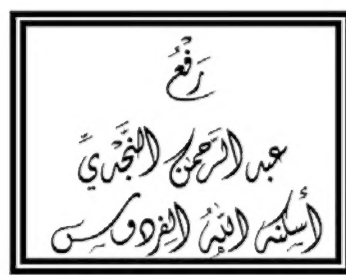 رَفْعُ
عبد الرَّحمن النَّجْديِّ
أسكنه اللّهُ الفِردوس